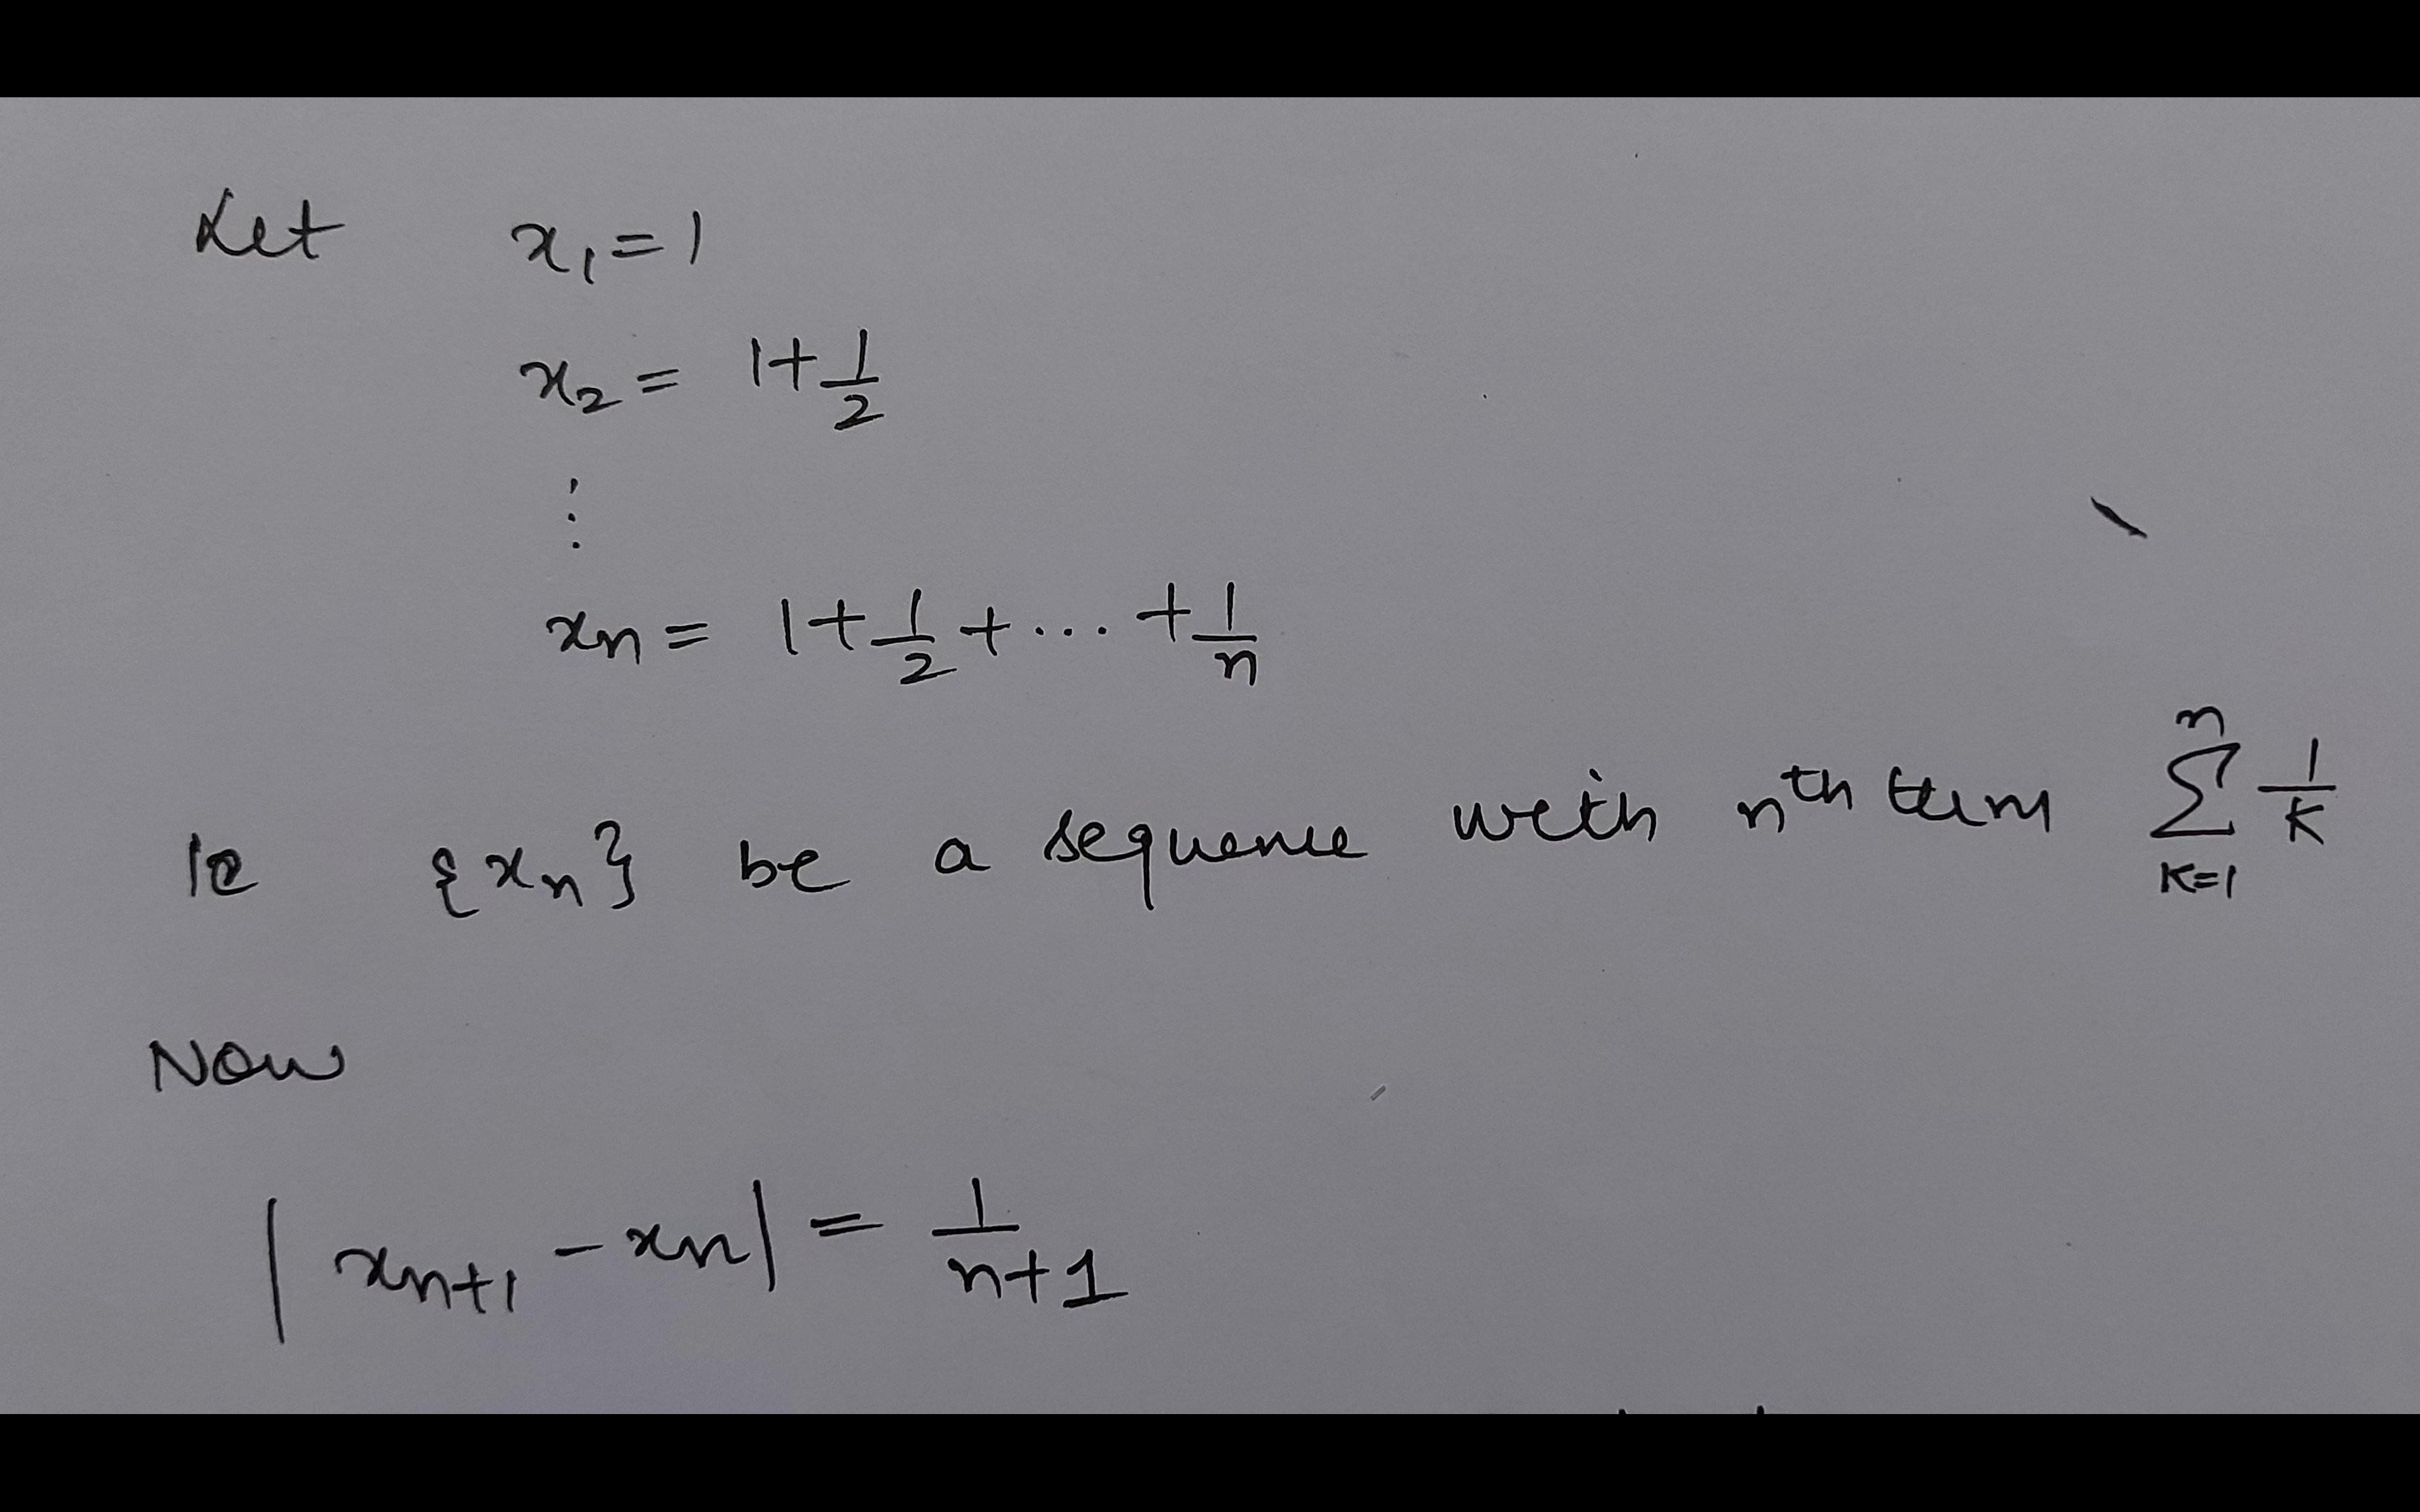 Let x₁ = 1
x₂ = 1 + 1/2
⋮
xn = 1 + 1/2 + ... + 1/n
ie {xn} be a sequence with nth term ∑_{K=1}^{n} 1/K
Now
|xn+1 - xn| = 1/(n+1)